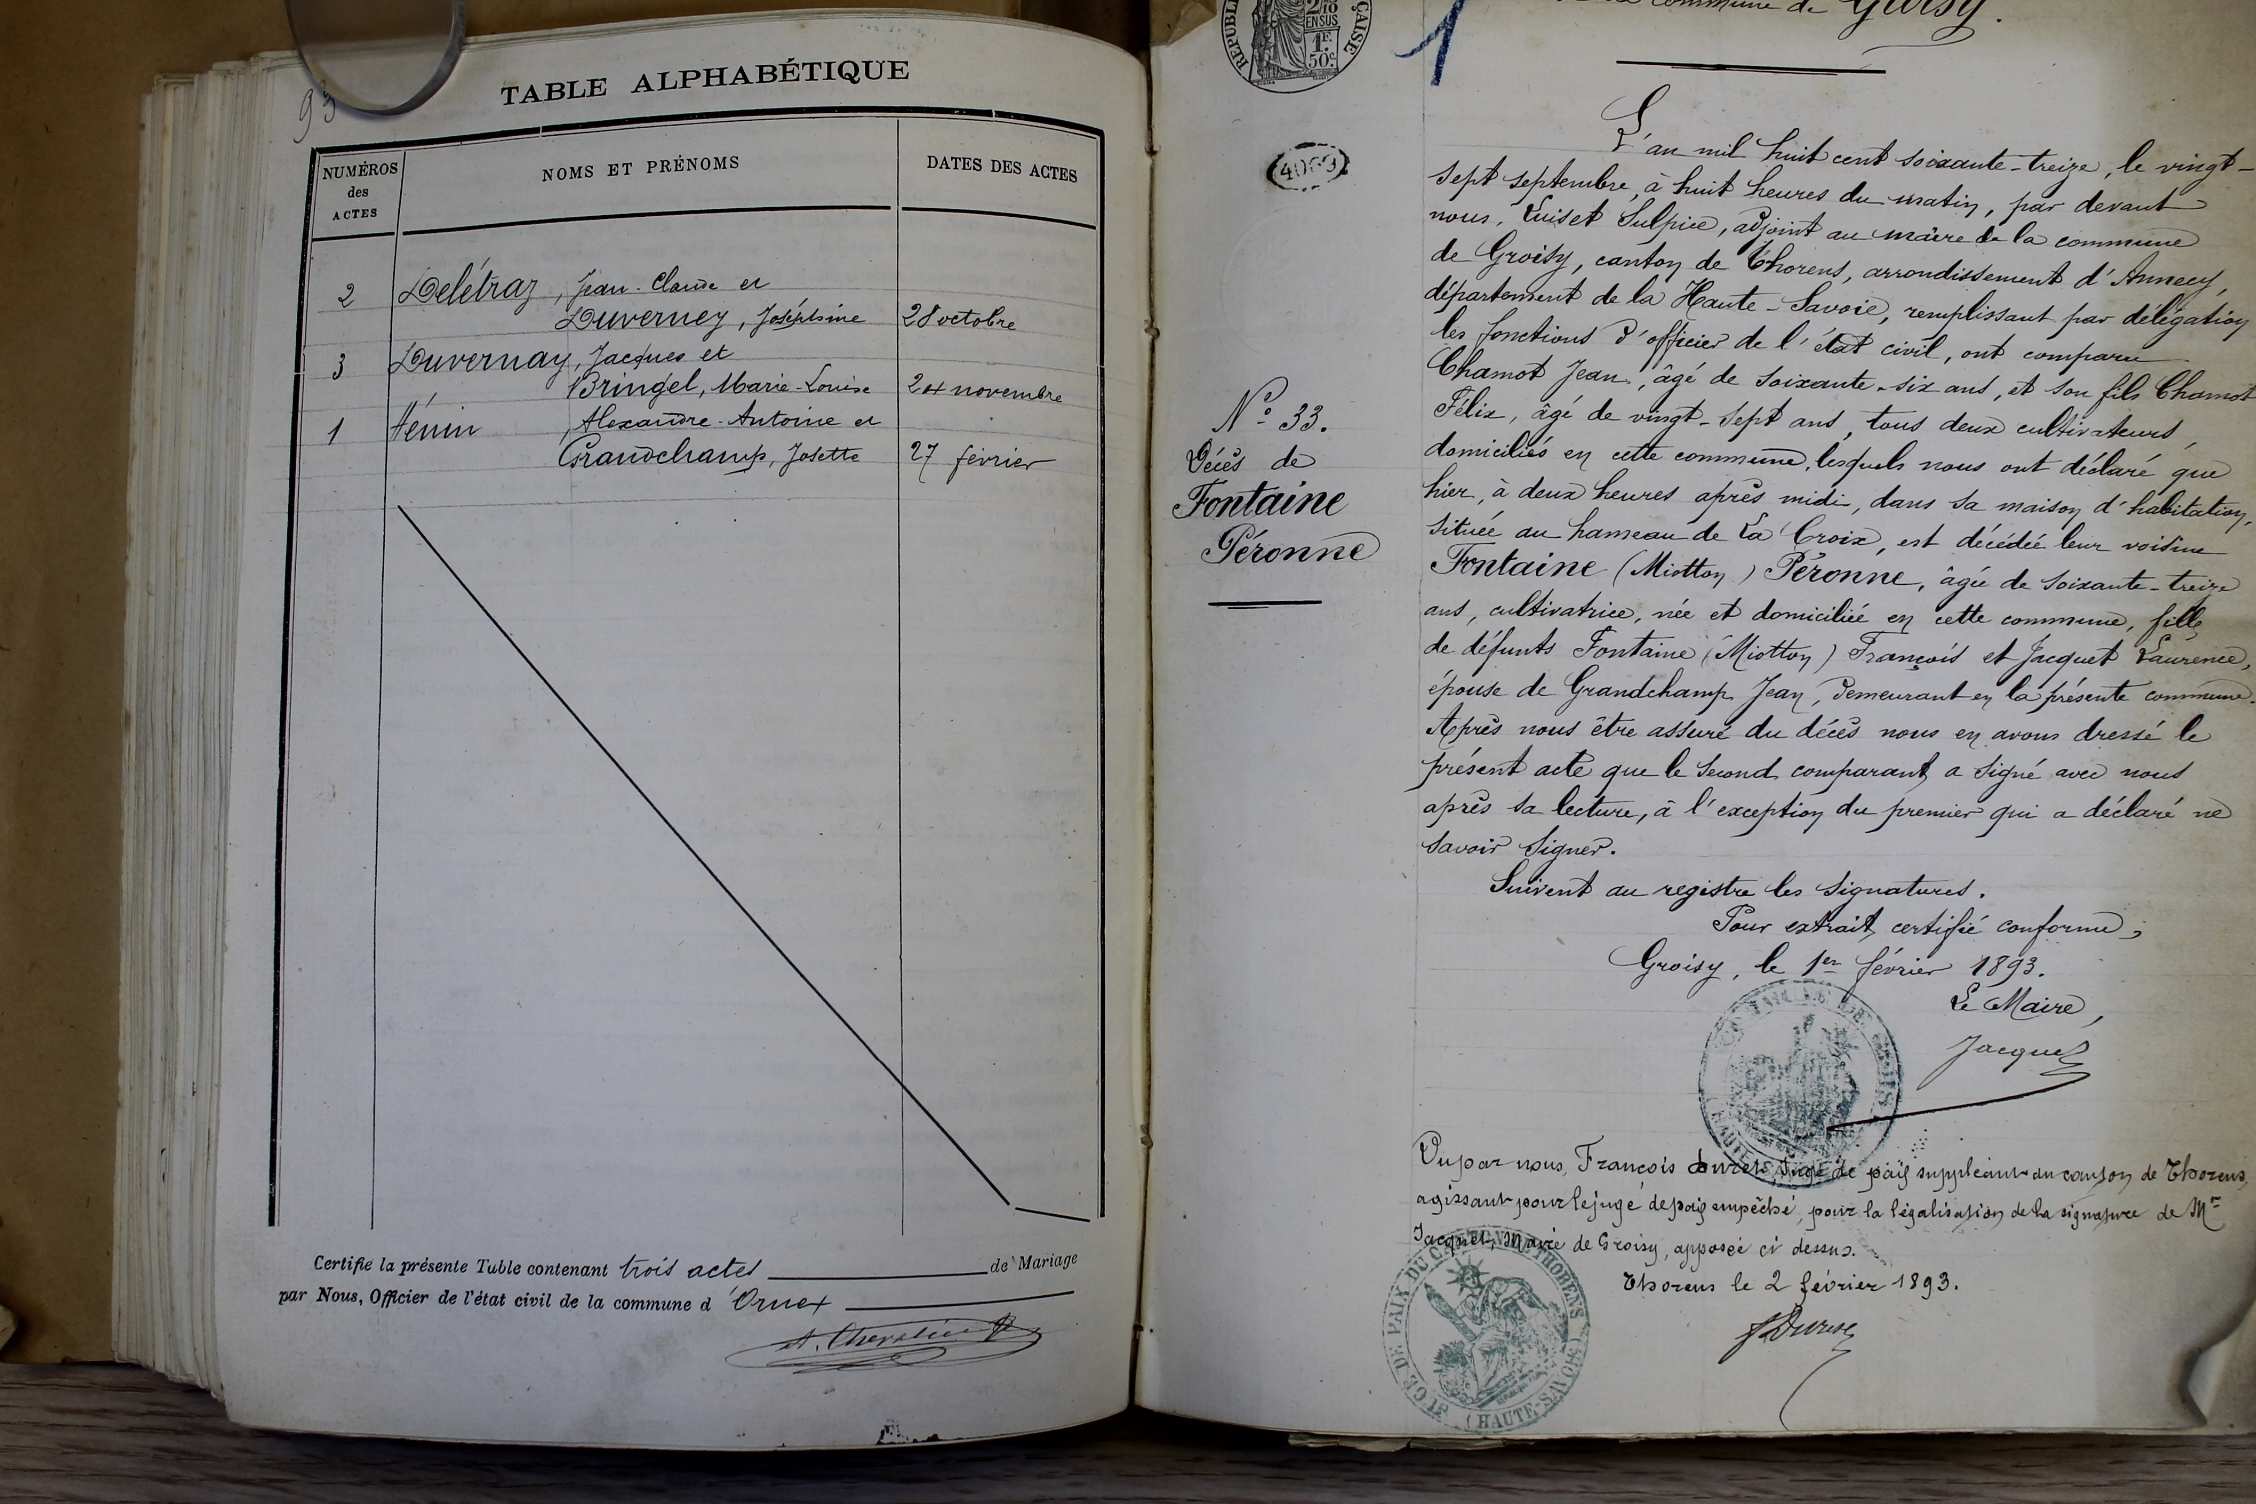 93
TABLE ALPHABÉTIQUE
NUMÉROS des ACTES
NOMS ET PRÉNOMS
DATES DES ACTES
2 Delétraz, Jean-Claude et
Duverney, Joséphine 28 octobre
3 Duvernay, Jacques et
Bringel, Marie-Louise 24 novembre
1 Hénin, Alexandre-Antoine et
Grandchamp, Josette 27 février
Certifie la présente Table contenant trois actes de Mariage
par Nous, Officier de l'état civil de la commune d'Ornex
A. Chevalier
commune de Groisy.
1
RÉPUBLIQUE FRANÇAISE
2/10 EN SUS
1F.
50c.
4069
L'an mil huit cent soixante-treize, le vingt-
sept septembre, à huit heures du matin, par devant
nous, Luiset Sulpice, adjoint au maire de la commune
de Groisy, canton de Thorens, arrondissement d'Annecy,
département de la Haute-Savoie, remplissant par délégation
les fonctions d'officier de l'état civil, ont comparu
Chamot Jean, âgé de soixante-six ans, et son fils Chamot
Félix, âgé de vingt-sept ans, tous deux cultivateurs,
domiciliés en cette commune, lesquels nous ont déclaré que
hier, à deux heures après midi, dans sa maison d'habitation,
située au hameau de La Croix, est décédée leur voisine
Fontaine (Miotton) Péronne, âgée de soixante-treize
ans, cultivatrice, née et domiciliée en cette commune, fille
de défunts Fontaine (Miotton) François et Jacquet Laurence,
épouse de Grandchamp Jean, demeurant en la présente commune.
Après nous être assuré du décès nous en avons dressé le
présent acte que le second comparant a signé avec nous
après sa lecture, à l'exception du premier qui a déclaré ne
savoir signer.
Suivent au registre les signatures.
Pour extrait certifié conforme;
Groisy, le 1er février 1893.
Le Maire,
Jacquet
N° 33.
Décès de
Fontaine
Péronne
Vu par nous, François Duret, Juge de paix suppléant du canton de Thorens,
agissant pour le juge de paix empêché, pour la légalisation de la signature de Mr
Jacquet, Maire de Groisy, apposée ci dessus.
Thorens le 2 février 1893.
F Duret
JUGE DE PAIX DU CANTON DE THORENS
(HAUTE-SAVOIE)